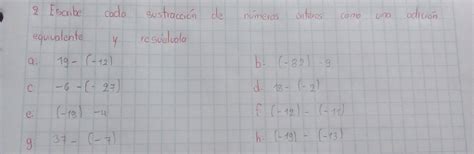 2 Escribe cada sustracción de números enteros como una adición
equivalente y resuélcala
a. 19 - (-12) b. (-82) - 9
c -6 - (-27) d. 18 - (-2)
e. (-13) - 4 f. (-12) - (-11)
g 37 - (-7) h. (-19) - (-13)